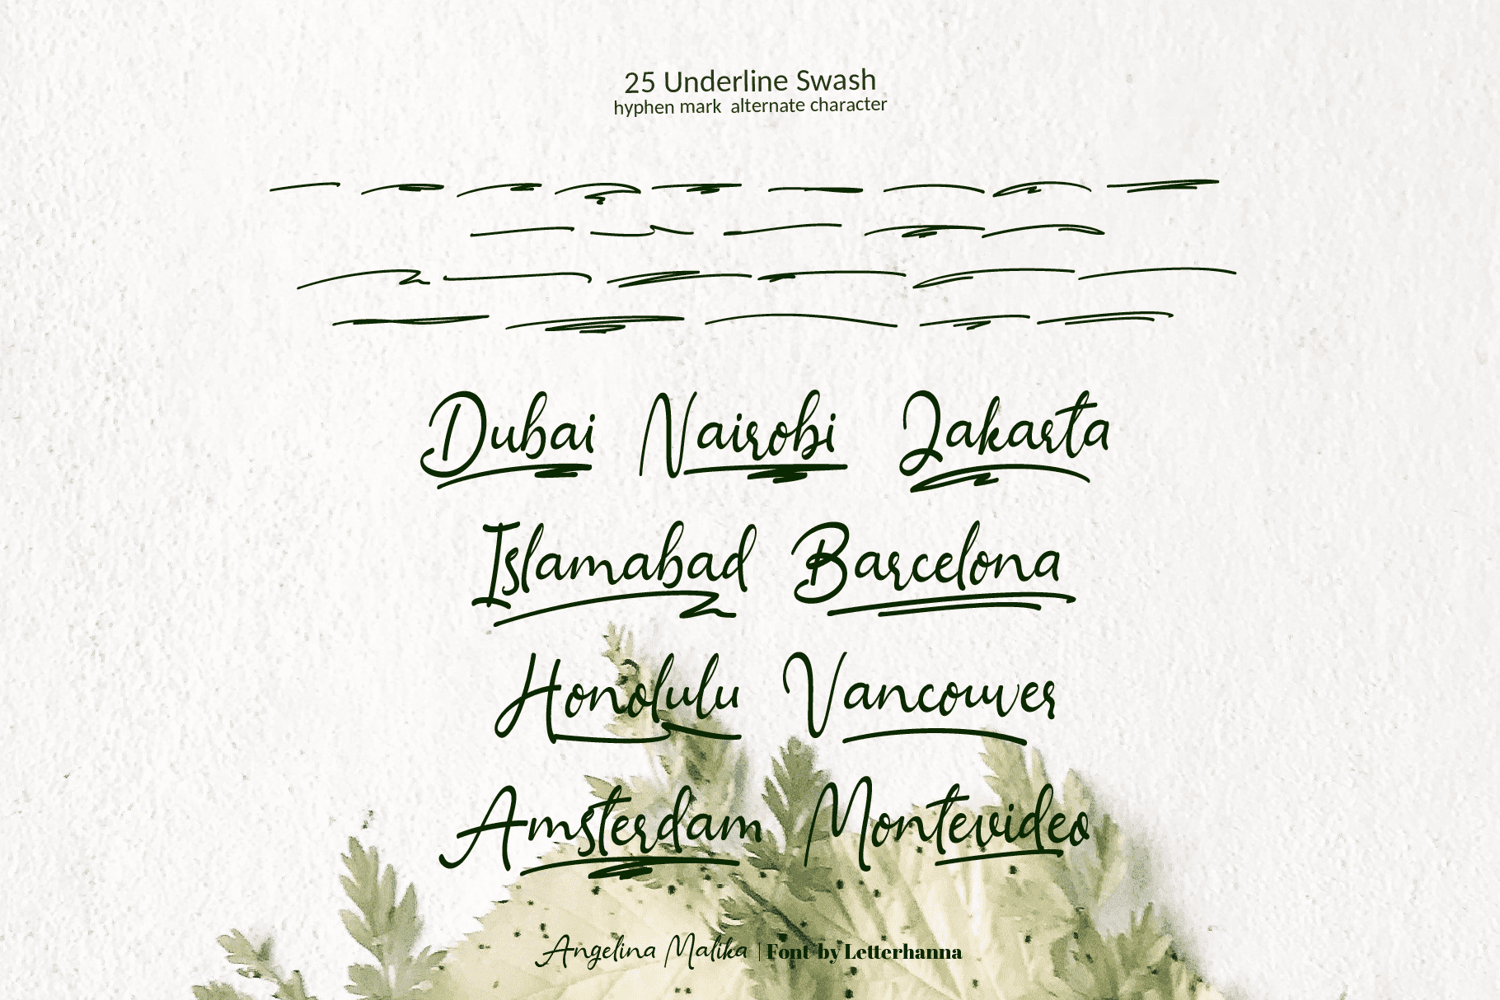 25 Underline Swash
hyphen mark alternate character
Dubai Nairobi Jakarta
Islamabad Barcelona
Honolulu Vancouver
Amsterdam Montevideo
Angelina Malika | Font by Letterhanna